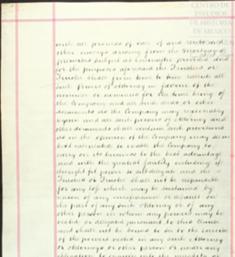 CENTRO DE
ESTUDIOS
DE HISTORIA
DE MEXICO
with all or some of
other moneys arising from the Mortgaged
premises subject as hereinafter provided and
for the purposes aforesaid the Trustees or
Trustee shall from time to time execute all
such powers of attorney in favour of the
manager or managers for the time being of
the Company and all such deeds or other
documents as the Company may reasonably
require and all such powers of attorney and
other documents shall contain such provisions
as in the opinion of the Company may seem
best calculated to enable the Company to
carry on its business to the best advantage
and with the greatest facility including if
thought fit power to substitute and the
Trustees or Trustee shall not be responsible
for any loss which may be sustained by
reason of any misfeasance or default on
the part of any such attorney or of any
other person in whom any powers may be
vested or delegated pursuant to this Clause
and shall not be bound to see to the exercise
of the powers vested in any such attorney
or attorneys or other person or under any
obligation to